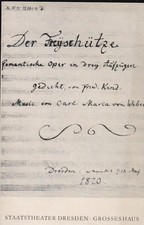 Der Freyschütze
Romantische Oper in drey Aufzügen
gedichtet von Fried. Kind.
Music von Carl Maria von Weber
Dresden
1820
STAATSTHEATER DRESDEN · GROSSES HAUS